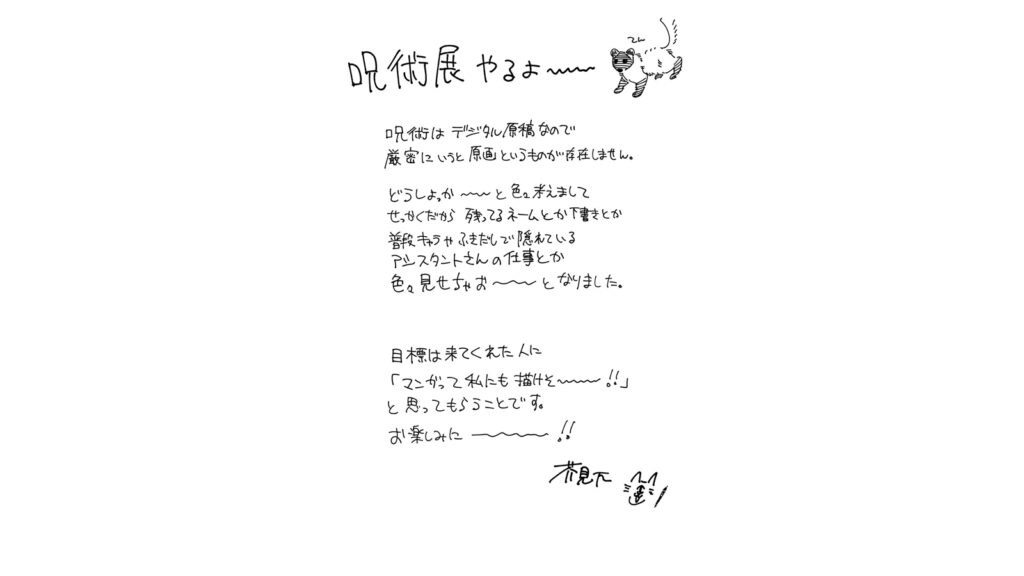 呪術展やるよ〜〜
てん
呪術は デジタル原稿なので
厳密にいうと原画というものが存在しません。
どうしよっか〜〜と色々考えまして
せっかくだから 残ってるネームとか下書きとか
普段キャラやふきだしで隠れている
アシスタントさんの仕事とか
色々見せちゃお〜〜となりました。
目標は来てくれた人に
「マンガって私にも描けそ〜〜〜!!」
と思ってもらうことです。
お楽しみに〜〜〜!!
芥見下々